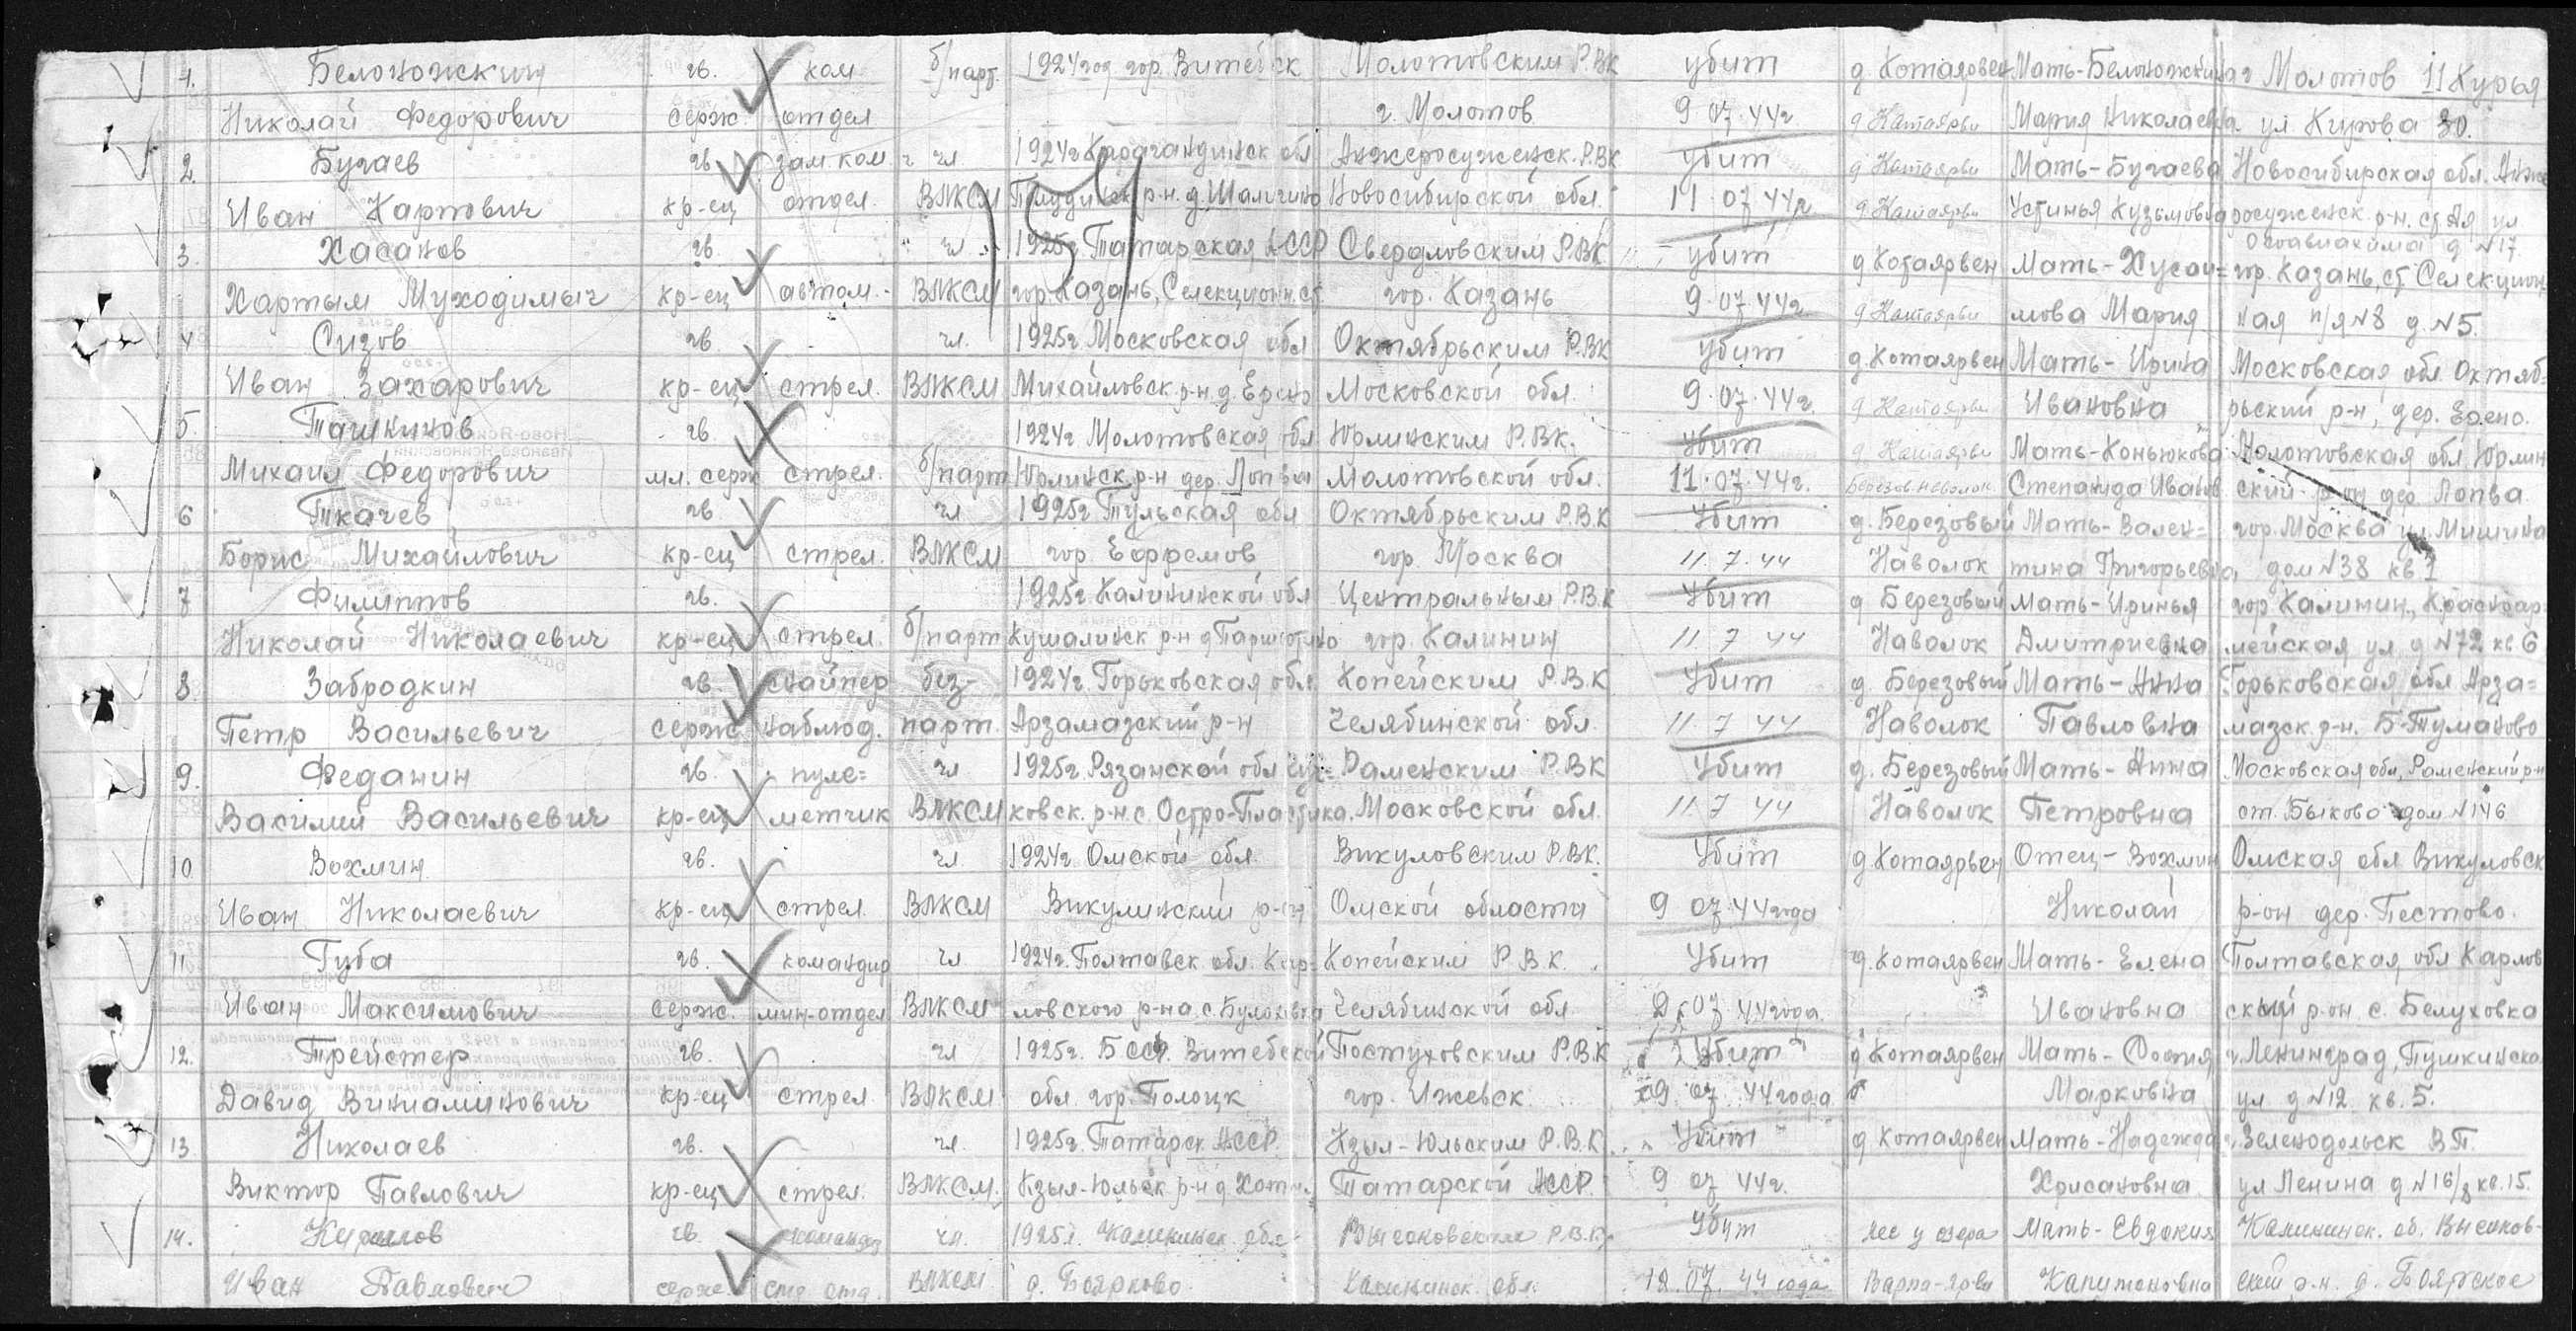 1. Белоножкин гв. ком б/парт. 1924 год гор. Витебск Молотовским Р.В.К убит д. Котаярвен Мать-Белоножкина г Молотов 11 Курья
Николай Федорович серж. отдел г. Молотов 9.07.44г Мария Николаевна ул Кирова 30.
2. Бугаев гв зам ком чл 1924г Карагандинск обл Анжеросудженск. Р.В.К убит Мать-Бугаева Новосибирская обл. Анже
Иван Карпович кр-ец отдел. ВЛКСМ р-н. д. Новосибирской обл. 11.07.44г Устинья Кузьмовна росудженск р-н. ст. Ая ул
Осоавиахима д №17
3. Хасанов гв. чл 1925г Татарская АССР Свердловским Р.В.К убит д Котаярвен Мать-Хусаи= гор. Казань, ст Селекцион
Хартым Муходимыч кр-ец автом. ВЛКСМ гор. Казань, Селекционн. ст. гор. Казань 9.07.44г мова Мария ная п/я №8 д. №5.
4 Сизов гв. чл. 1925г Московская обл Октябрьским Р.В.К убит д. Котаярвен Мать-Ирина Московская обл. Октяб=
Иван Захарович кр-ец стрел. ВЛКСМ Михайловск р-н. д. Ерено Московской обл. 9.07.44г. Ивановна рьский р-н, дер. Ерено.
5. Ташкинов гв. 1924г Молотовская обл Юрлинским Р.В.К. убит Мать-Коньюкова Молотовская обл Юрлин
Михаил Федорович мл. серж стрел. б/парт Юрлинск. р-н дер. Лопва Молотовской обл. 11.07.44г. Степанида Иванов ский р-он дер Лопва.
6 Ткачев гв чл 1925г Тульская обл Октябрьским Р.В.К Убит д. Березовый Мать-Вален= гор. Москва ул. Мишина
Борис Михайлович кр-ец стрел. ВЛКСМ гор Ефремов гор. Москва 11.7.44 Наволок тина Григорьевна дом №38 кв 1
7 Филиппов гв. 1925г Калининской обл Центральным Р.В.К Убит д Березовый Мать-Иринья гор. Калинин, Красноар=
Николай Николаевич кр-ец стрел. б/парт Кушалинск р-н д гор. Калинин 11 7 44 Наволок Дмитриевна мейская ул д №72 кв 6
8 Забродкин гв. снайпер без- 1924г. Горьковская обл Копейским Р.В.К Убит д Березовый Мать-Анна Горьковская обл Арза=
Петр Васильевич серж. наблюд. парт. Арзамазский р-н Челябинской обл. 11 7 44 Наволок Павловна мазск р-н. Б-Туманово
9. Феданин гв. пуле= чл 1925г. Рязанской обл Раменским Р.В.К Убит д. Березовый Мать-Анна Московская обл, Раменский р-н
Василий Васильевич кр-ец метчик ВЛКСМ ковск. р-н с. Остро-Пластика. Московской обл. 11 7 44 Наволок Петровна ст. Быково дом №146
10 Вохмин гв. чл 1924г. Омской обл Викуловским Р.В.К. Убит д. Котаярвен Отец-Вохмин Омская обл Викуловск
Иван Николаевич кр-ец стрел ВЛКСМ Викулинский р-он Омской области 9 07.44 года Николай р-он дер. Пестово.
11 Губа гв. командир чл 1924г. Полтавск обл. Кар= Копейским Р.В.К. Убит д. Котаярвен Мать-Елена Полтавская обл Карлов
Иван Максимович серж. мин-отдел ВЛКСМ ловского р-на с. Челябинской обл 9.07.44 года. Ивановна ский р-он с. Белуховка
12. Трейстер гв. чл 1925г. БССР. Витебской Постуховским Р.В.К Убит д Котаярвен Мать-София г. Ленинград, Пушкинска
Давид Виниаминович кр-ец стрел ВЛКСМ обл. гор. Полоцк гор. Ижевск 09.07.44 года Марковна ул д №12 кв. 5.
13 Николаев гв. чл. 1925г. Татарск. АССР. Кзыл-Юльским Р.В.К. Убит д Котаярвен Мать-Надежда г. Зеленодольск ВП.
Виктор Павлович кр-ец стрел. ВЛКСМ. Кзыл-Юльск р-н д Татарской АССР. 9 07 44г. Хрисановна ул Ленина д №16/8 кв. 15.
14. Кириллов гв. командир чл. 1925г. Калининск. обл. Высоковским Р.В.К. Убит лес у озера Мать-Евдокия Калининск. об. Высоков-
Иван Павлович серж. отд. ВЛКСМ д. Боярково. Калининск. обл. 12.07.44 года Варпа-ярви Капитоновна ский р-н. д. Боярское